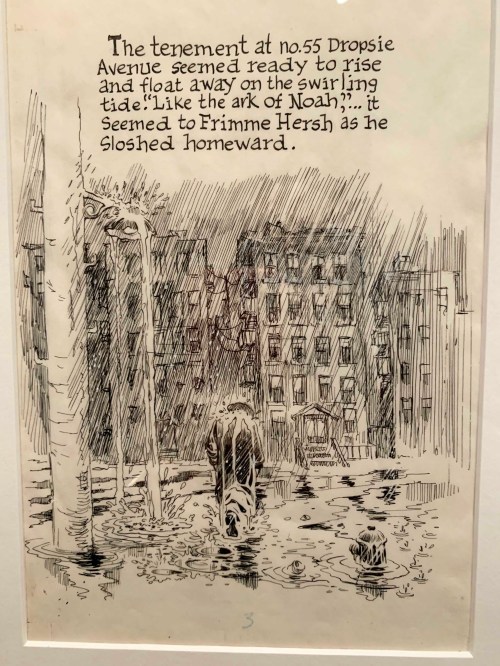 The tenement at no.55 Dropsie
Avenue seemed ready to rise
and float away on the swirling
tide. "Like the ark of Noah,"... it
seemed to Frimme Hersh as he
sloshed homeward.
3